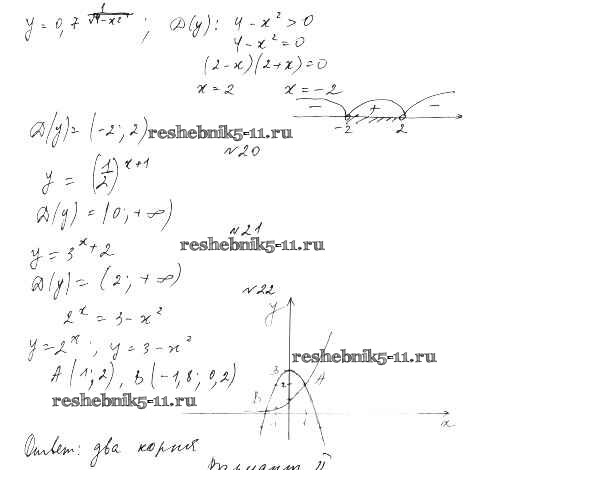 y = 0,7^(1/√(4-x²)) ; D(y): 4 - x² > 0
4 - x² = 0
(2-x)(2+x) = 0
x = 2 x = -2
- + -
-2 2
D(y) = (-2; 2) reshebnik5-11.ru
№20
y = (1/2)^(x+1)
D(y) = (0; +∞)
№21
reshebnik5-11.ru
y = 3^x + 2
D(y) = (2; +∞)
№22
2^x = 3 - x²
y = 2^x ; y = 3 - x²
A (1; 2), B (-1,8; 0,2)
reshebnik5-11.ru
y
reshebnik5-11.ru
3
2
A
B
-1 1
x
Ответ: два корня
Вариант II